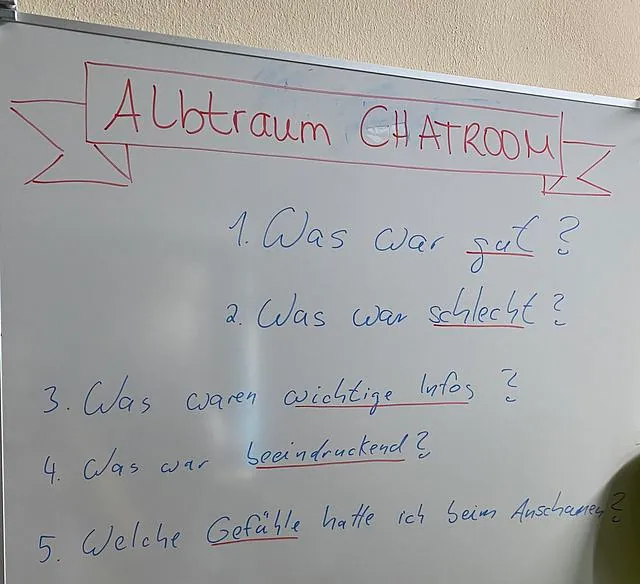 Albtraum CHATROOM
1. Was war gut?
2. Was war schlecht?
3. Was waren wichtige Infos?
4. Was war beeindruckend?
5. Welche Gefühle hatte ich beim Anschauen?